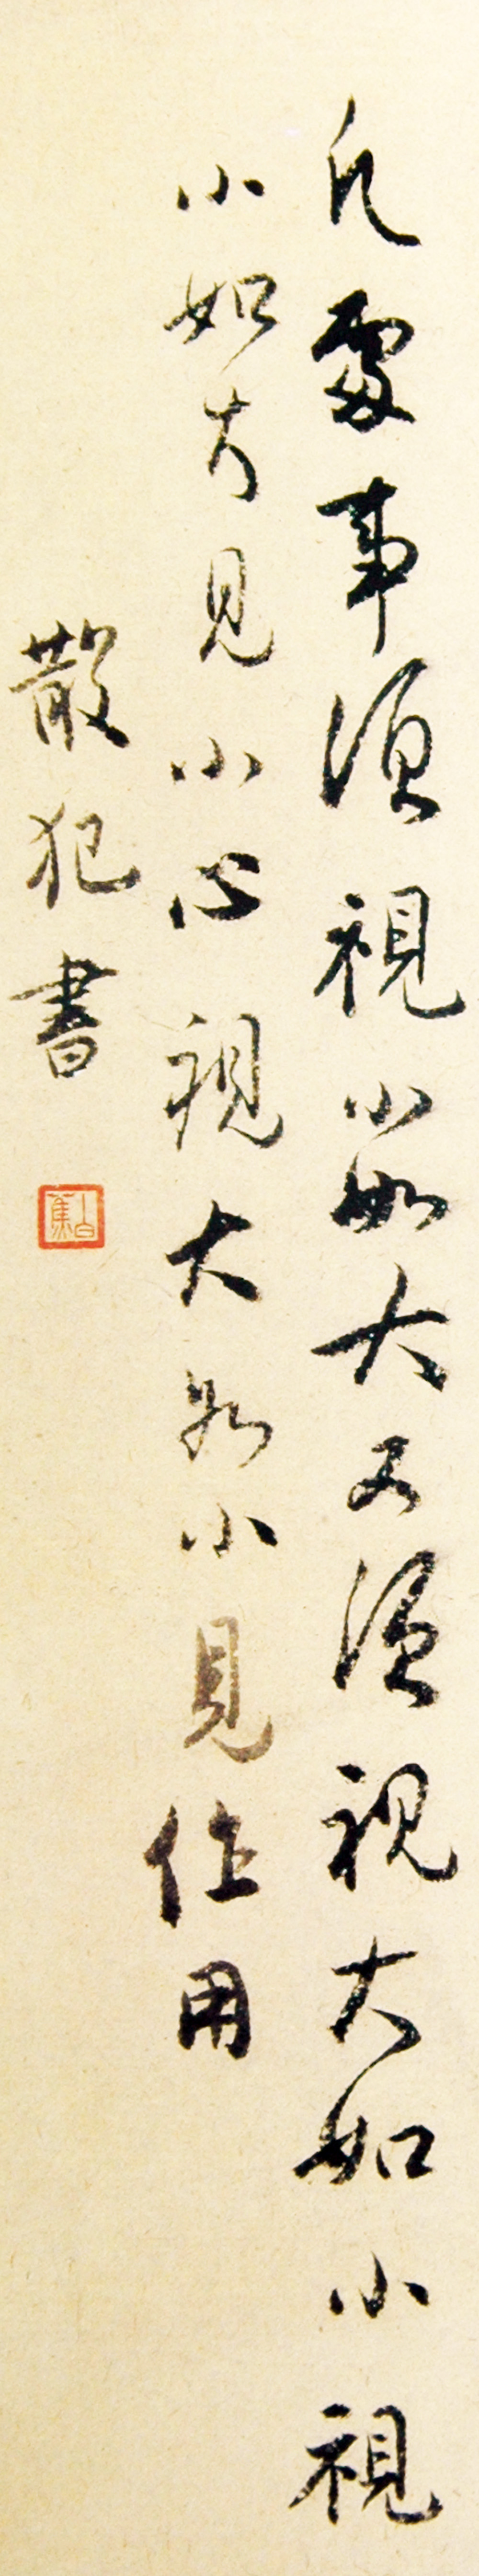 凡處事須視小如大又須視大如小視
小如大見小心視大如小見作用
散犯書